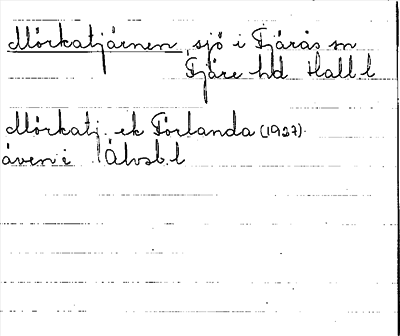 Mörkatjärnen, sjö i Fjärås sn
Fjäre hd Hall. l
Mörkatj. ek Förlanda (1927).
även i Älvsb. l